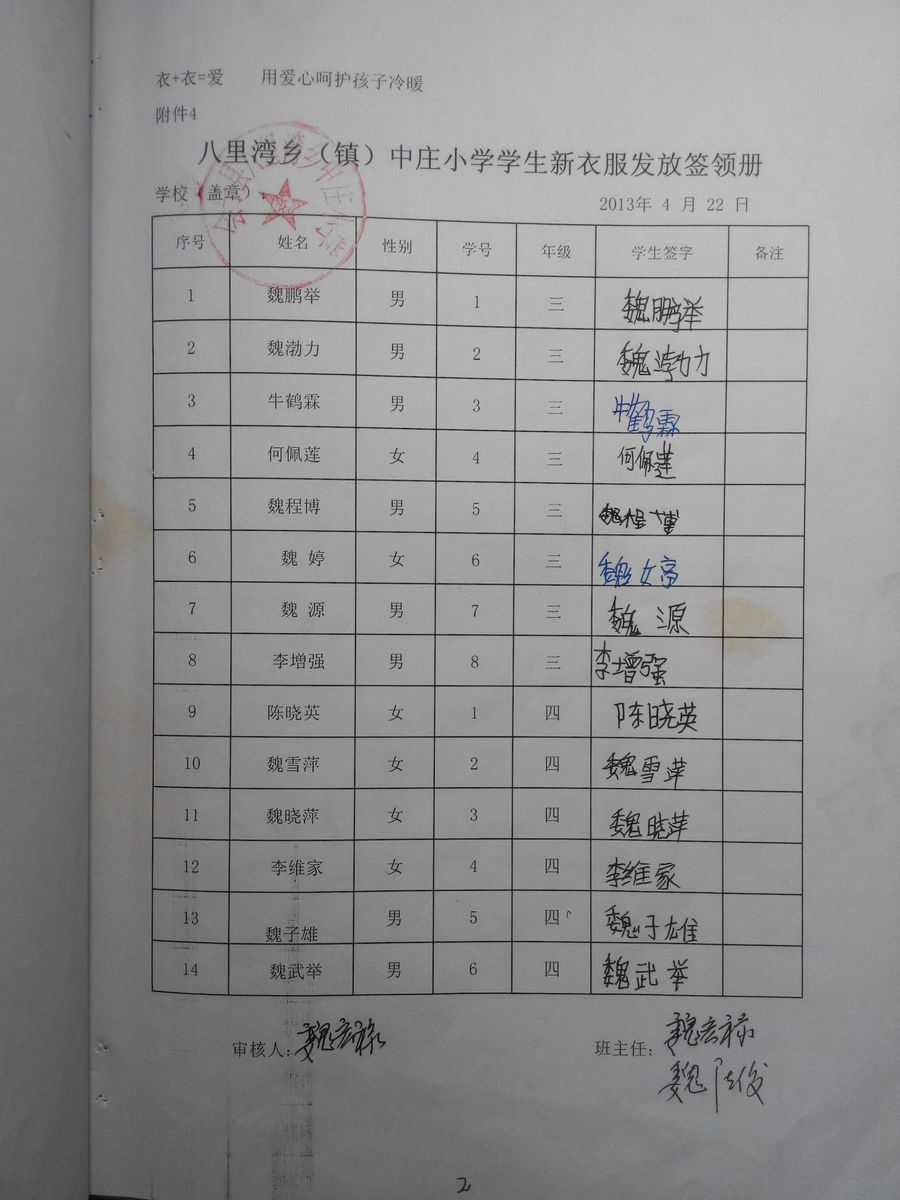 衣+衣=爱 用爱心呵护孩子冷暖
附件4
八里湾乡（镇）中庄小学学生新衣服发放签领册
学校（盖章） 2013年 4 月 22 日
序号 姓名 性别 学号 年级 学生签字 备注
1 魏鹏举 男 1 三 魏鹏举
2 魏渤力 男 2 三 魏渤力
3 牛鹤霖 男 3 三 牛鹤霖
4 何佩莲 女 4 三 何佩莲
5 魏程博 男 5 三 魏程博
6 魏 婷 女 6 三 魏婷
7 魏 源 男 7 三 魏 源
8 李增强 男 8 三 李增强
9 陈晓英 女 1 四 陈晓英
10 魏雪萍 女 2 四 魏雪萍
11 魏晓萍 女 3 四 魏晓萍
12 李维家 女 4 四 李维家
13 魏子雄 男 5 四 魏子雄
14 魏武举 男 6 四 魏武举
审核人：魏宏禄 班主任：魏宏禄
魏 俊
2